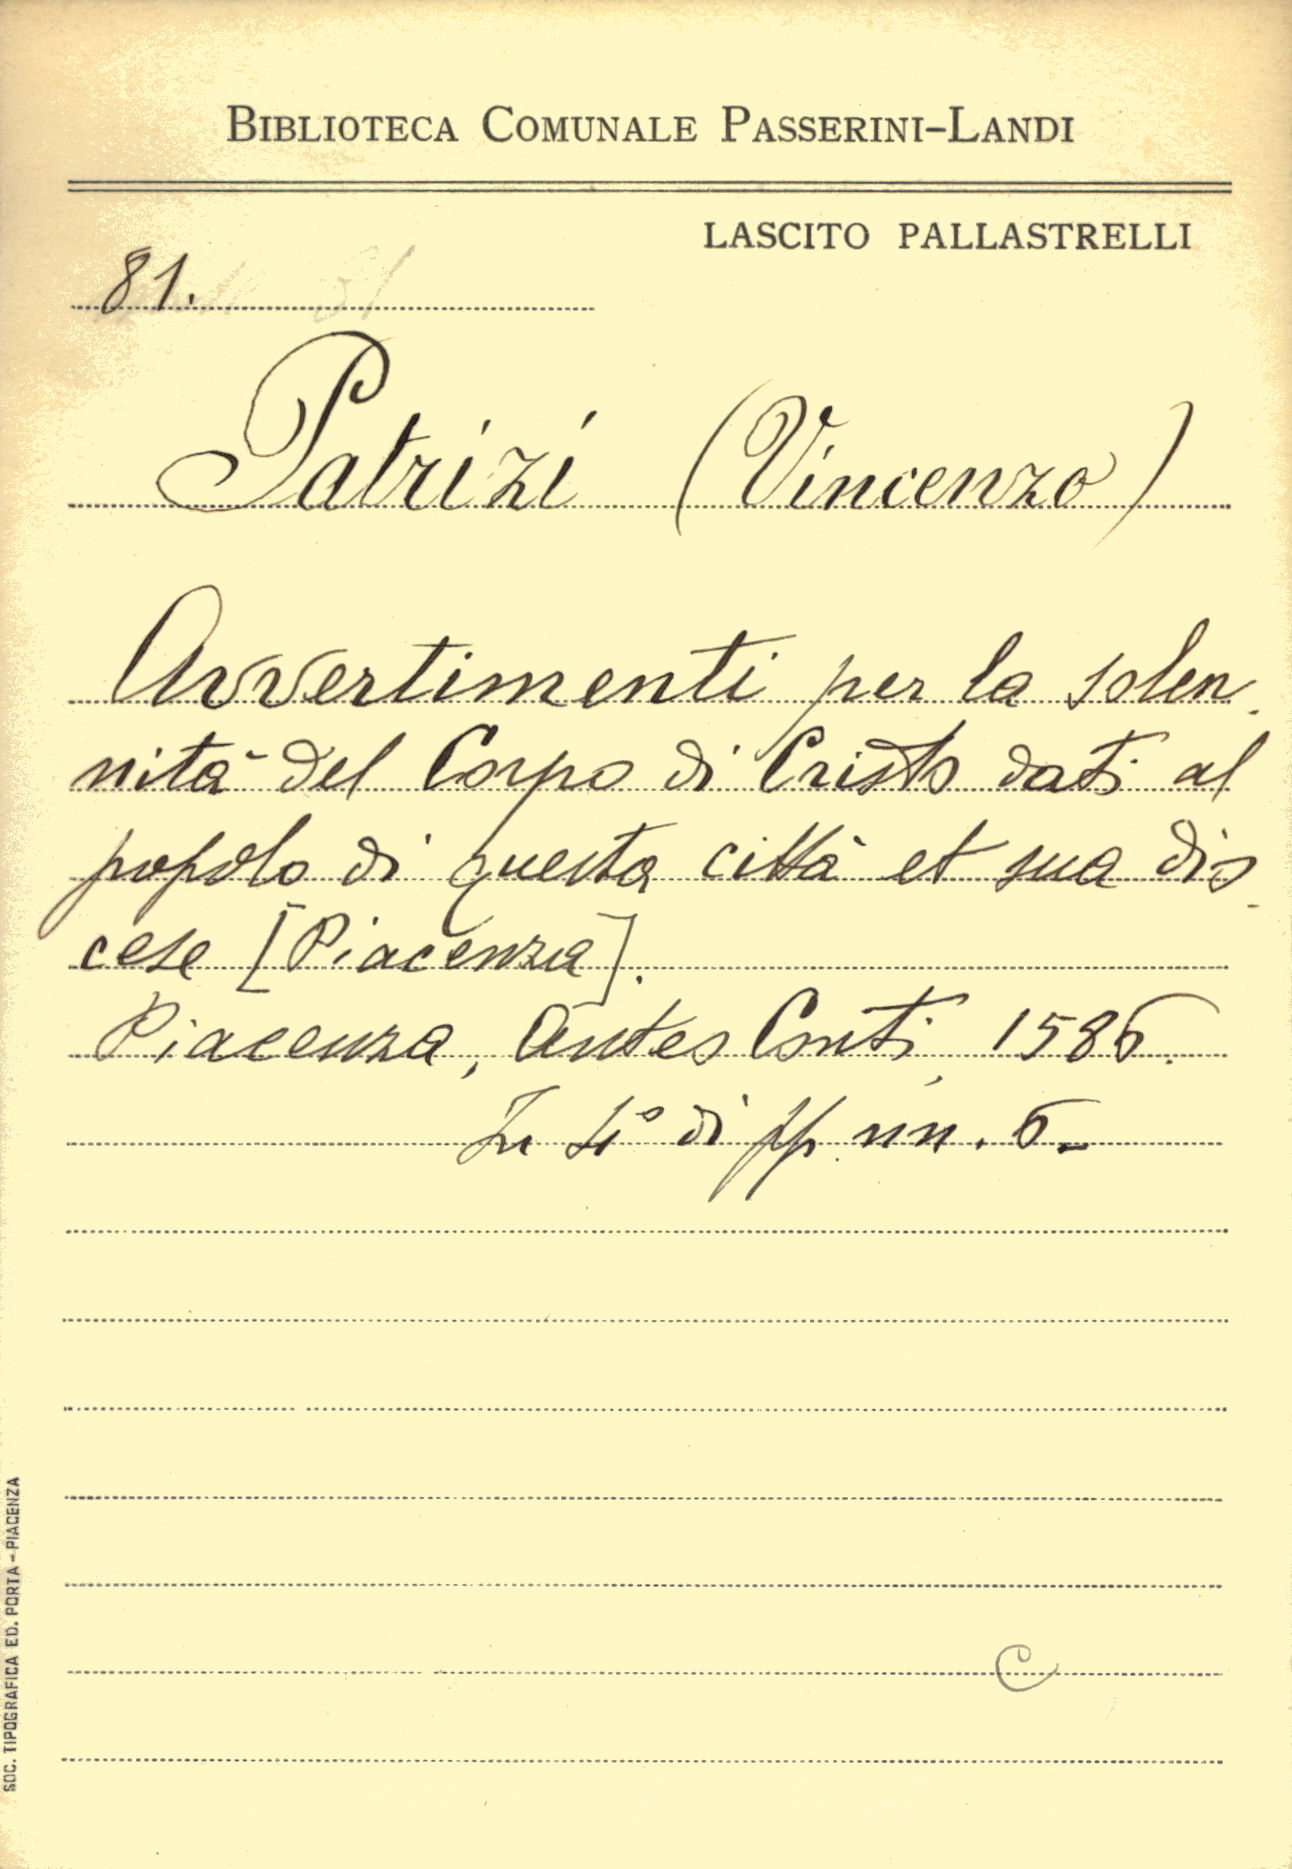 BIBLIOTECA COMUNALE PASSERINI-LANDI
LASCITO PALLASTRELLI
81.
Patrizi (Vincenzo)
Avvertimenti per la solen-
nità del Corpo di Cristo dati al
popolo di questa città et sua dio-
cese [Piacenza].
Piacenza, Conti, 1586.
In 4° di pp. nn. 6.
C
SOC. TIPOGRAFICA ED. PORTA - PIACENZA